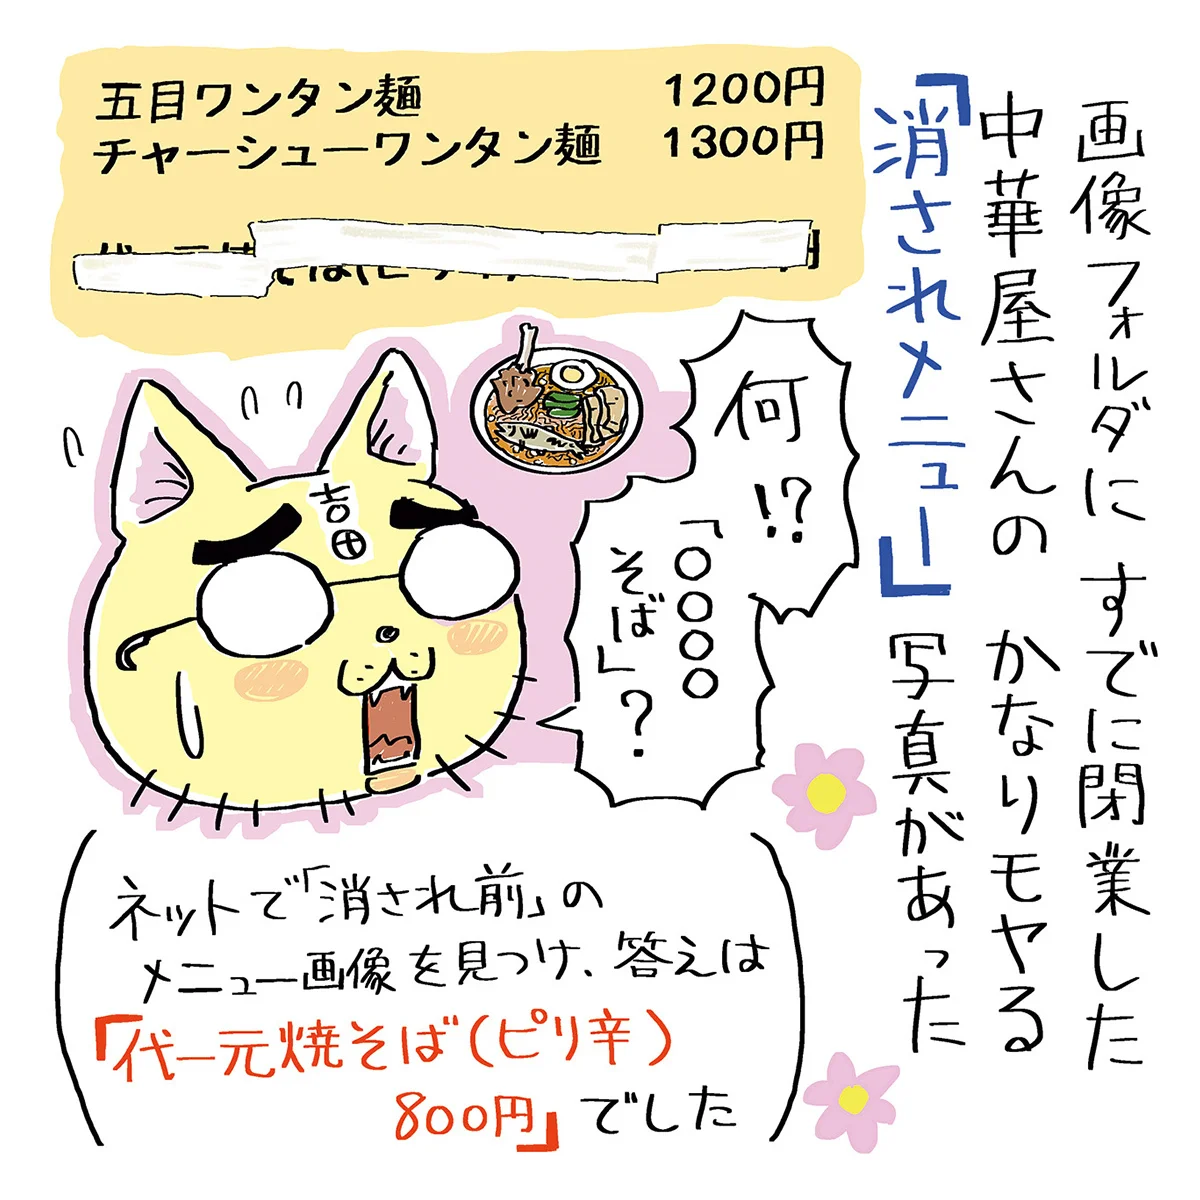 画像フォルダに すでに閉業した
中華屋さんの かなりモヤる
「消されメニュー」写真があった
五目ワンタン麺 1200円
チャーシューワンタン麺 1300円
何!?
「〇〇〇〇
そば」?
吉田
ネットで「消され前」の
メニュー画像を見つけ、答えは
「代一元焼そば(ピリ辛)
800円」でした